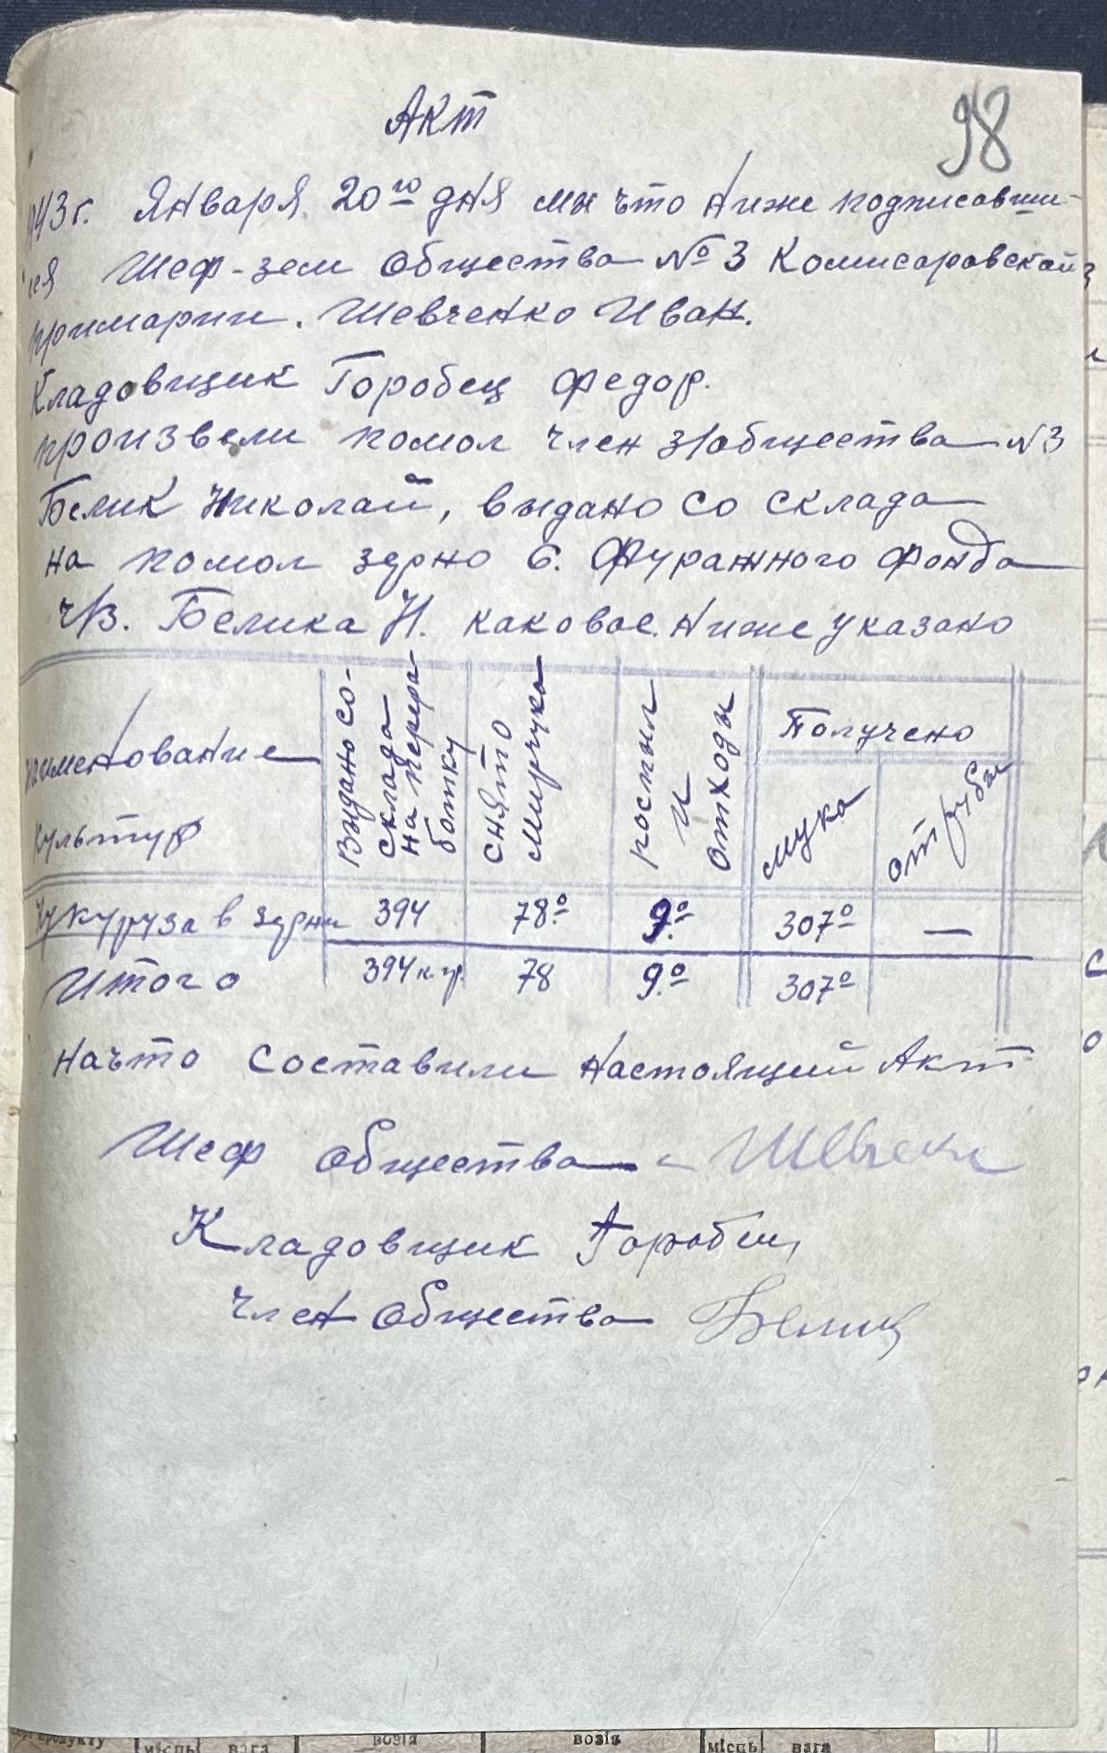 98
Акт
1943г. Января 20го дня мы что ниже подписавши-
еся Шеф-зем общества №3 Комисаровской
примарии. Шевченко Иван.
Кладовщик Горобец Федор.
произвели помол член з/общества №3
Белик Николай, выдано со склада
на помол зерно с. Фуражного Фонда
ч/з. Белика Н. каковое. ниже указано
наименование культур
Выдано со-склада на перера-ботку
снято мирчука
роспыл и отходы
Получено
мука
отруби
Кукуруза в зерни 394 78.º 9.º 307º —
Итого 394 к.гр. 78 9.º 307º
начто составили настоящий Акт
Шеф общества - Шевченк
Кладовщик Горобец
член общества Белик
продукту місць вага возів возів місць вага